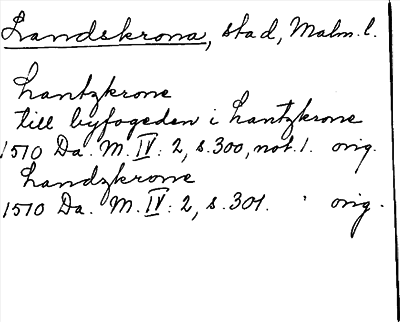 Landskrona, stad, Malm. l.
Lantzkrone
till byfogeden i Lantzkrone
1510 Da. M. IV: 2, s. 300, not. 1. orig.
Landzkrone
1510 Da. M. IV: 2, s. 301. orig.